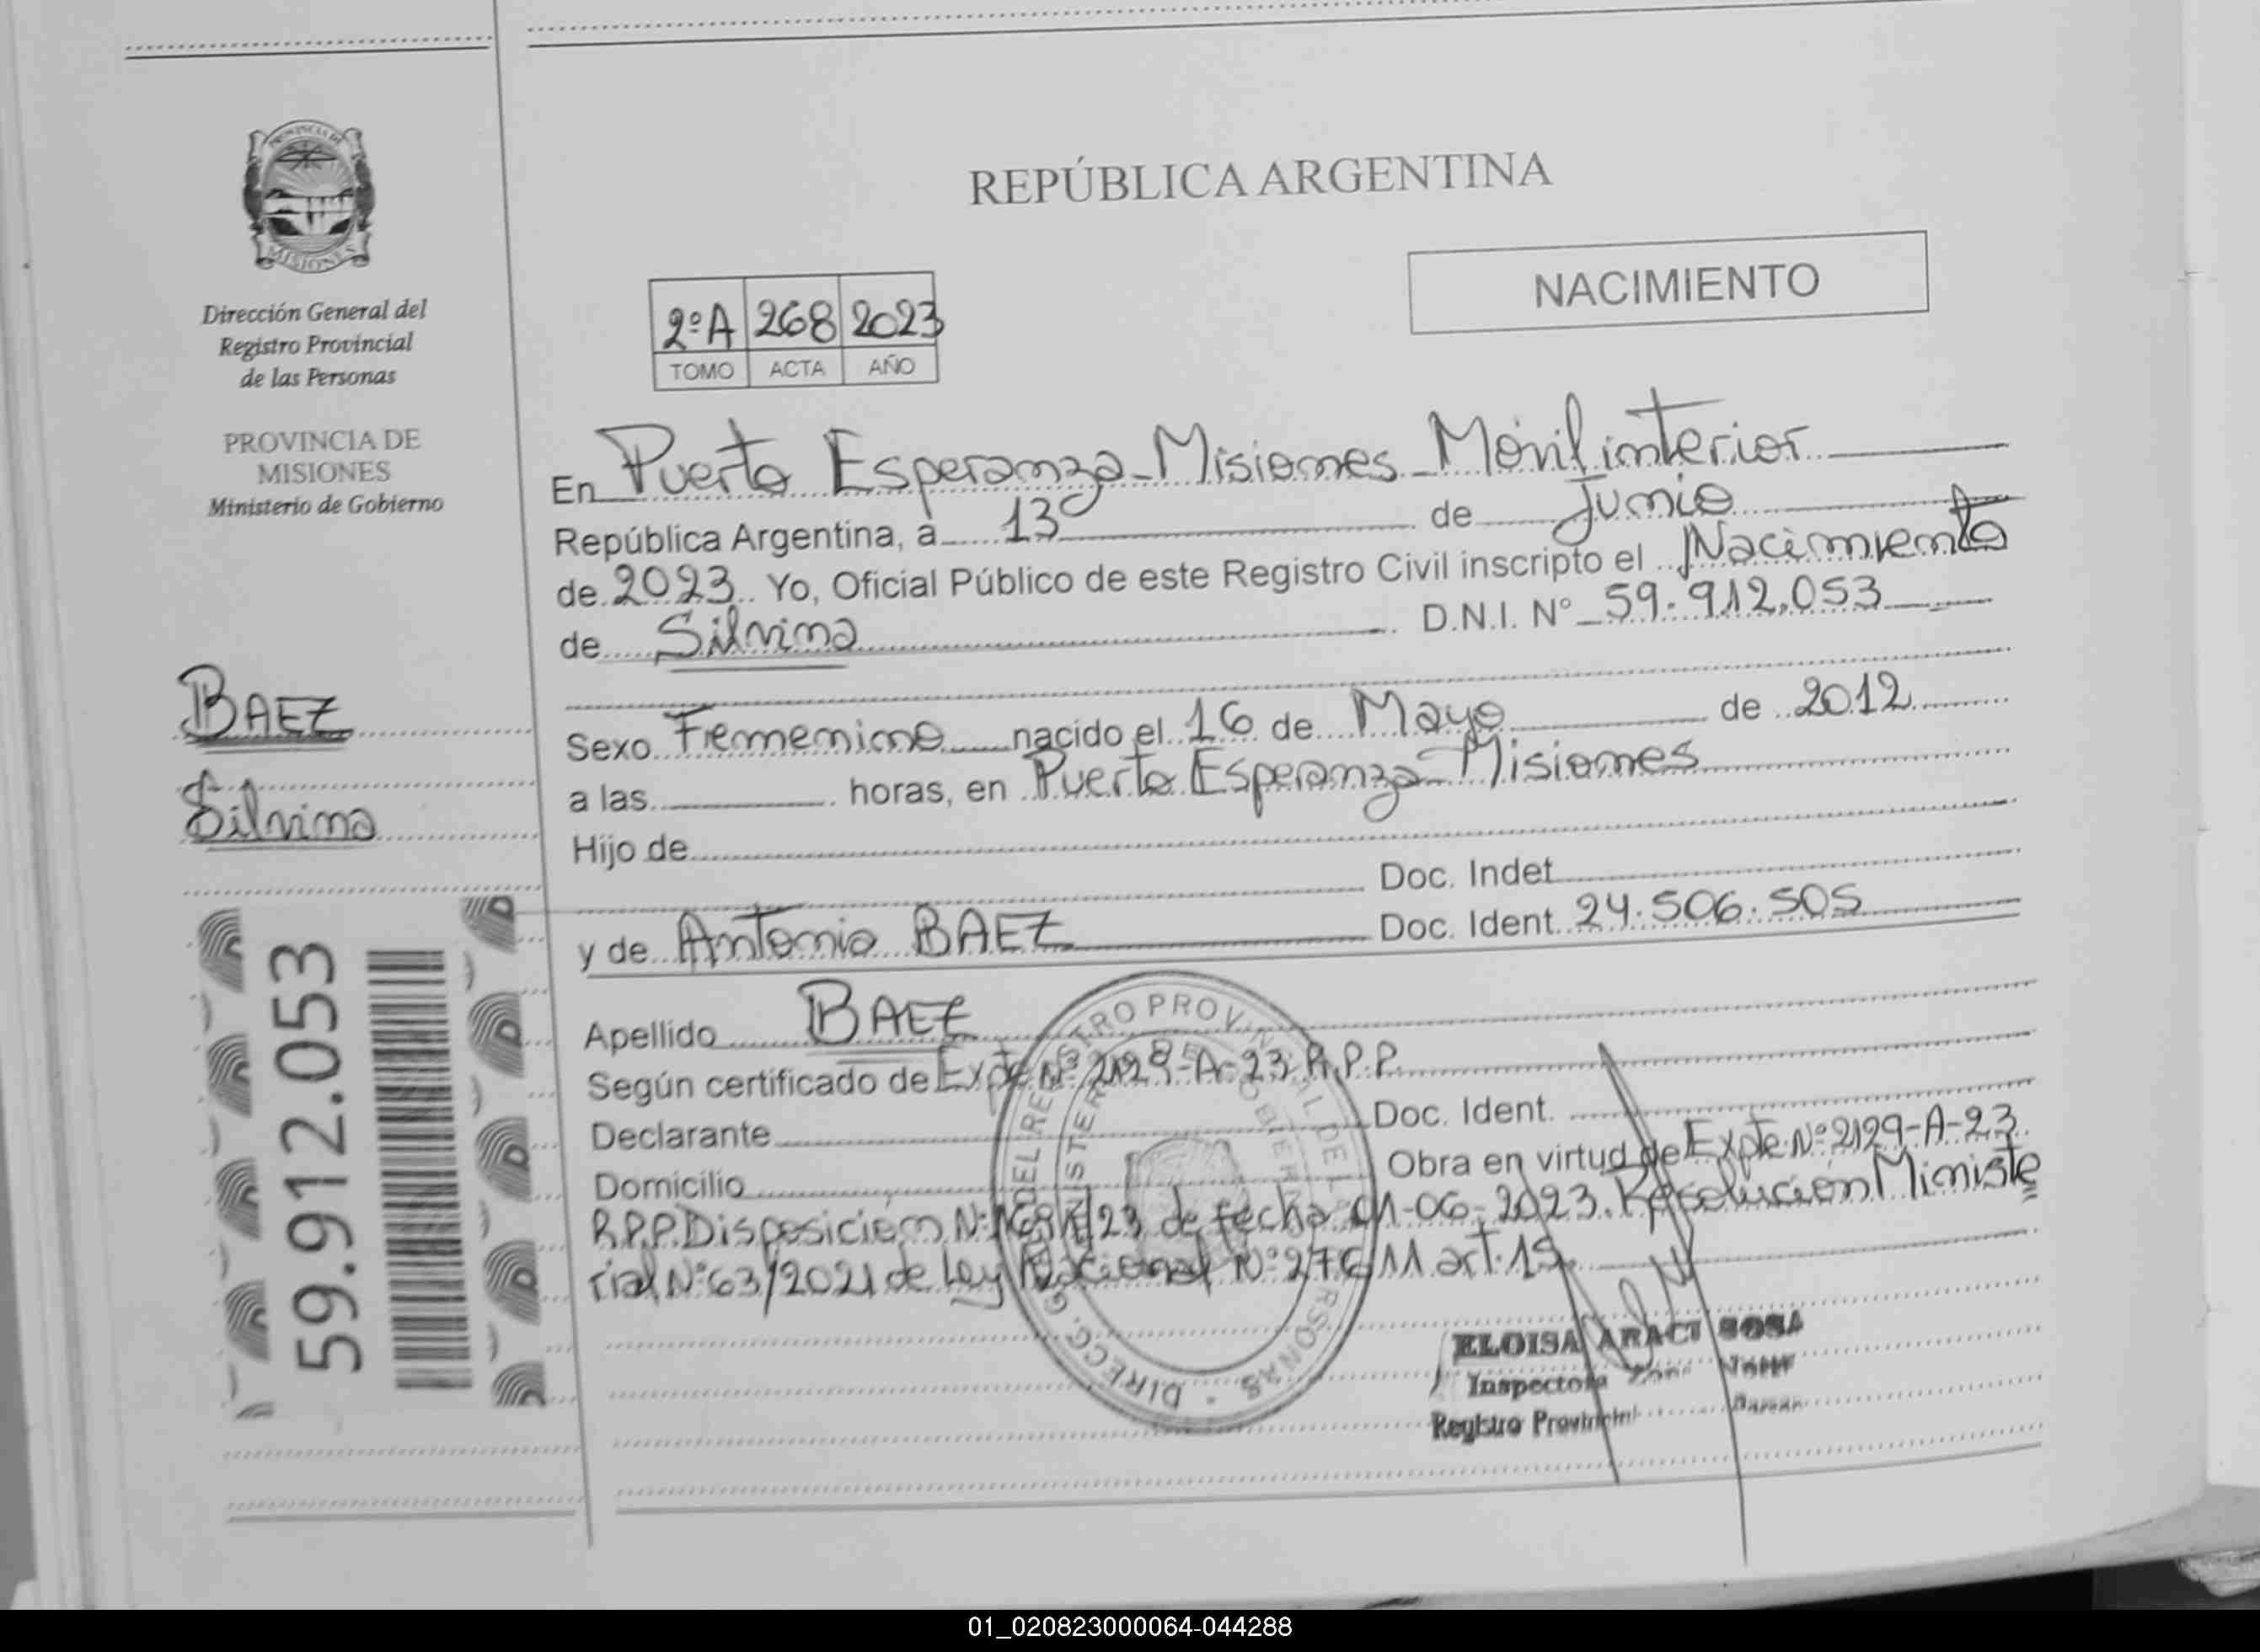 REPÚBLICA ARGENTINA
NACIMIENTO
2ºA 268 2023
TOMO ACTA AÑO
Dirección General del
Registro Provincial
de las Personas
PROVINCIA DE
MISIONES
Ministerio de Gobierno
BAEZ
Silvina
59.912.053
En Puerto Esperanza-Misiones-Móvil interior
República Argentina, a 13 de Junio
de 2023 Yo, Oficial Público de este Registro Civil inscripto el Nacimiento
de Silvina D.N.I. Nº 59.912.053
Sexo Femenino nacido el 16 de Mayo de 2012
a las horas, en Puerto Esperanza-Misiones
Hijo de
Doc. Indet
y de Antonio BAEZ Doc. Ident. 24.506.505
Apellido BAEZ
Según certificado de Expte Nº 2129-A-23 R.P.P.
Declarante Doc. Ident.
Domicilio Obra en virtud de Expte.Nº2129-A-23
R.P.P.Disposición Nº /23 de fecha 01-06-2023.Resolución Ministe
rial Nº63/2021 de Ley Nacional Nº27611 art.15
DIRECC. G DEL REGISTRO PROVINCIAL DE L PERSONAS
MINISTERIO DE GOBIERNO
ELOISA ARACI SOSA
Inspectora Zona
Registro Provincial
01_020823000064-044288